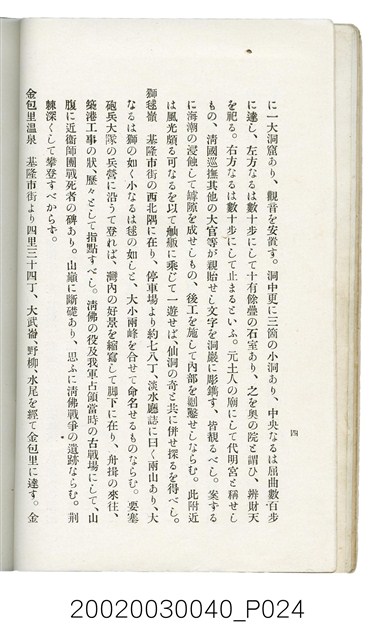 四
に一大洞窟あり、觀音を安置す。洞中更に三箇の小洞あり、中央なるは屈曲數百步
に達し、左方なるは數十步にして十有餘疊の石室あり、之を奥の院と謂ひ、辨財天
を祀る。右方なるは數十步にして止まるといふ。元土人の廟にして代明宮と稱せし
もの、淸國巡撫其他の大官等が親貽せし文字を洞巖に彫鐫す、皆觀るべし。案する
に海潮の浸蝕して罅隙を成せしもの、後工を施して內部を剷鑿せしならむ。此附近
は風光頗る可なるを以て舢舨に乘じて一遊せば、仙洞の奇と共に併せ探るを得べし。
獅毬嶺 基隆市街の西北隅に在り、停車場より約七八丁、淡水廳誌に曰く兩山あり、大
なるは獅の如く小なるは毬の如しと、大小兩峰を合せて命名せるものならむ。要塞
砲兵大隊の兵營に沿うて登れば、灣內の好景を縮寫して脚下に在り、舟揖の來往、
築港工事の狀、歷々として指點すべし。淸佛の役及我軍占領當時の古戰場にして、山
腹に近衞師團戰死者の碑あり。山巓に斷礎あり、思ふに淸佛戰爭の遺跡ならむ。荆
棘深くして攀登すべからず。
金包里溫泉 基隆市街より四里三十四丁、大武崙、野柳、水尾を經て金包里に達す。金
20020030040_P024